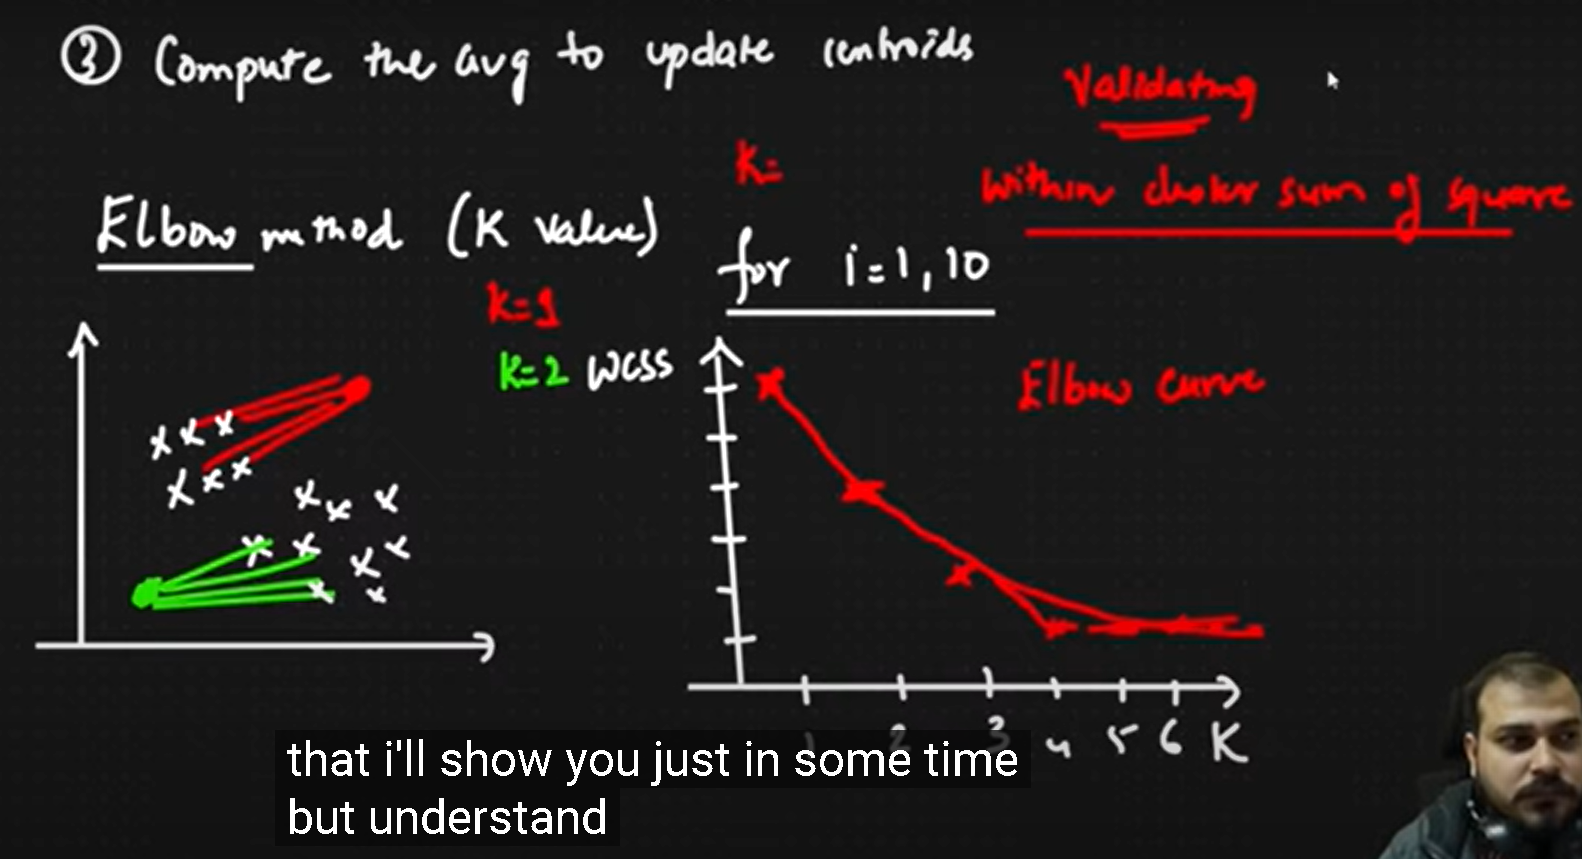 ③ Compute the avg to update centroids
Validating
K=
Within cluster sum of square
Elbow method (K value)
for i=1,10
K=1
K=2 WCSS
Elbow curve
1 2 3 4 5 6 K
that i'll show you just in some time
but understand